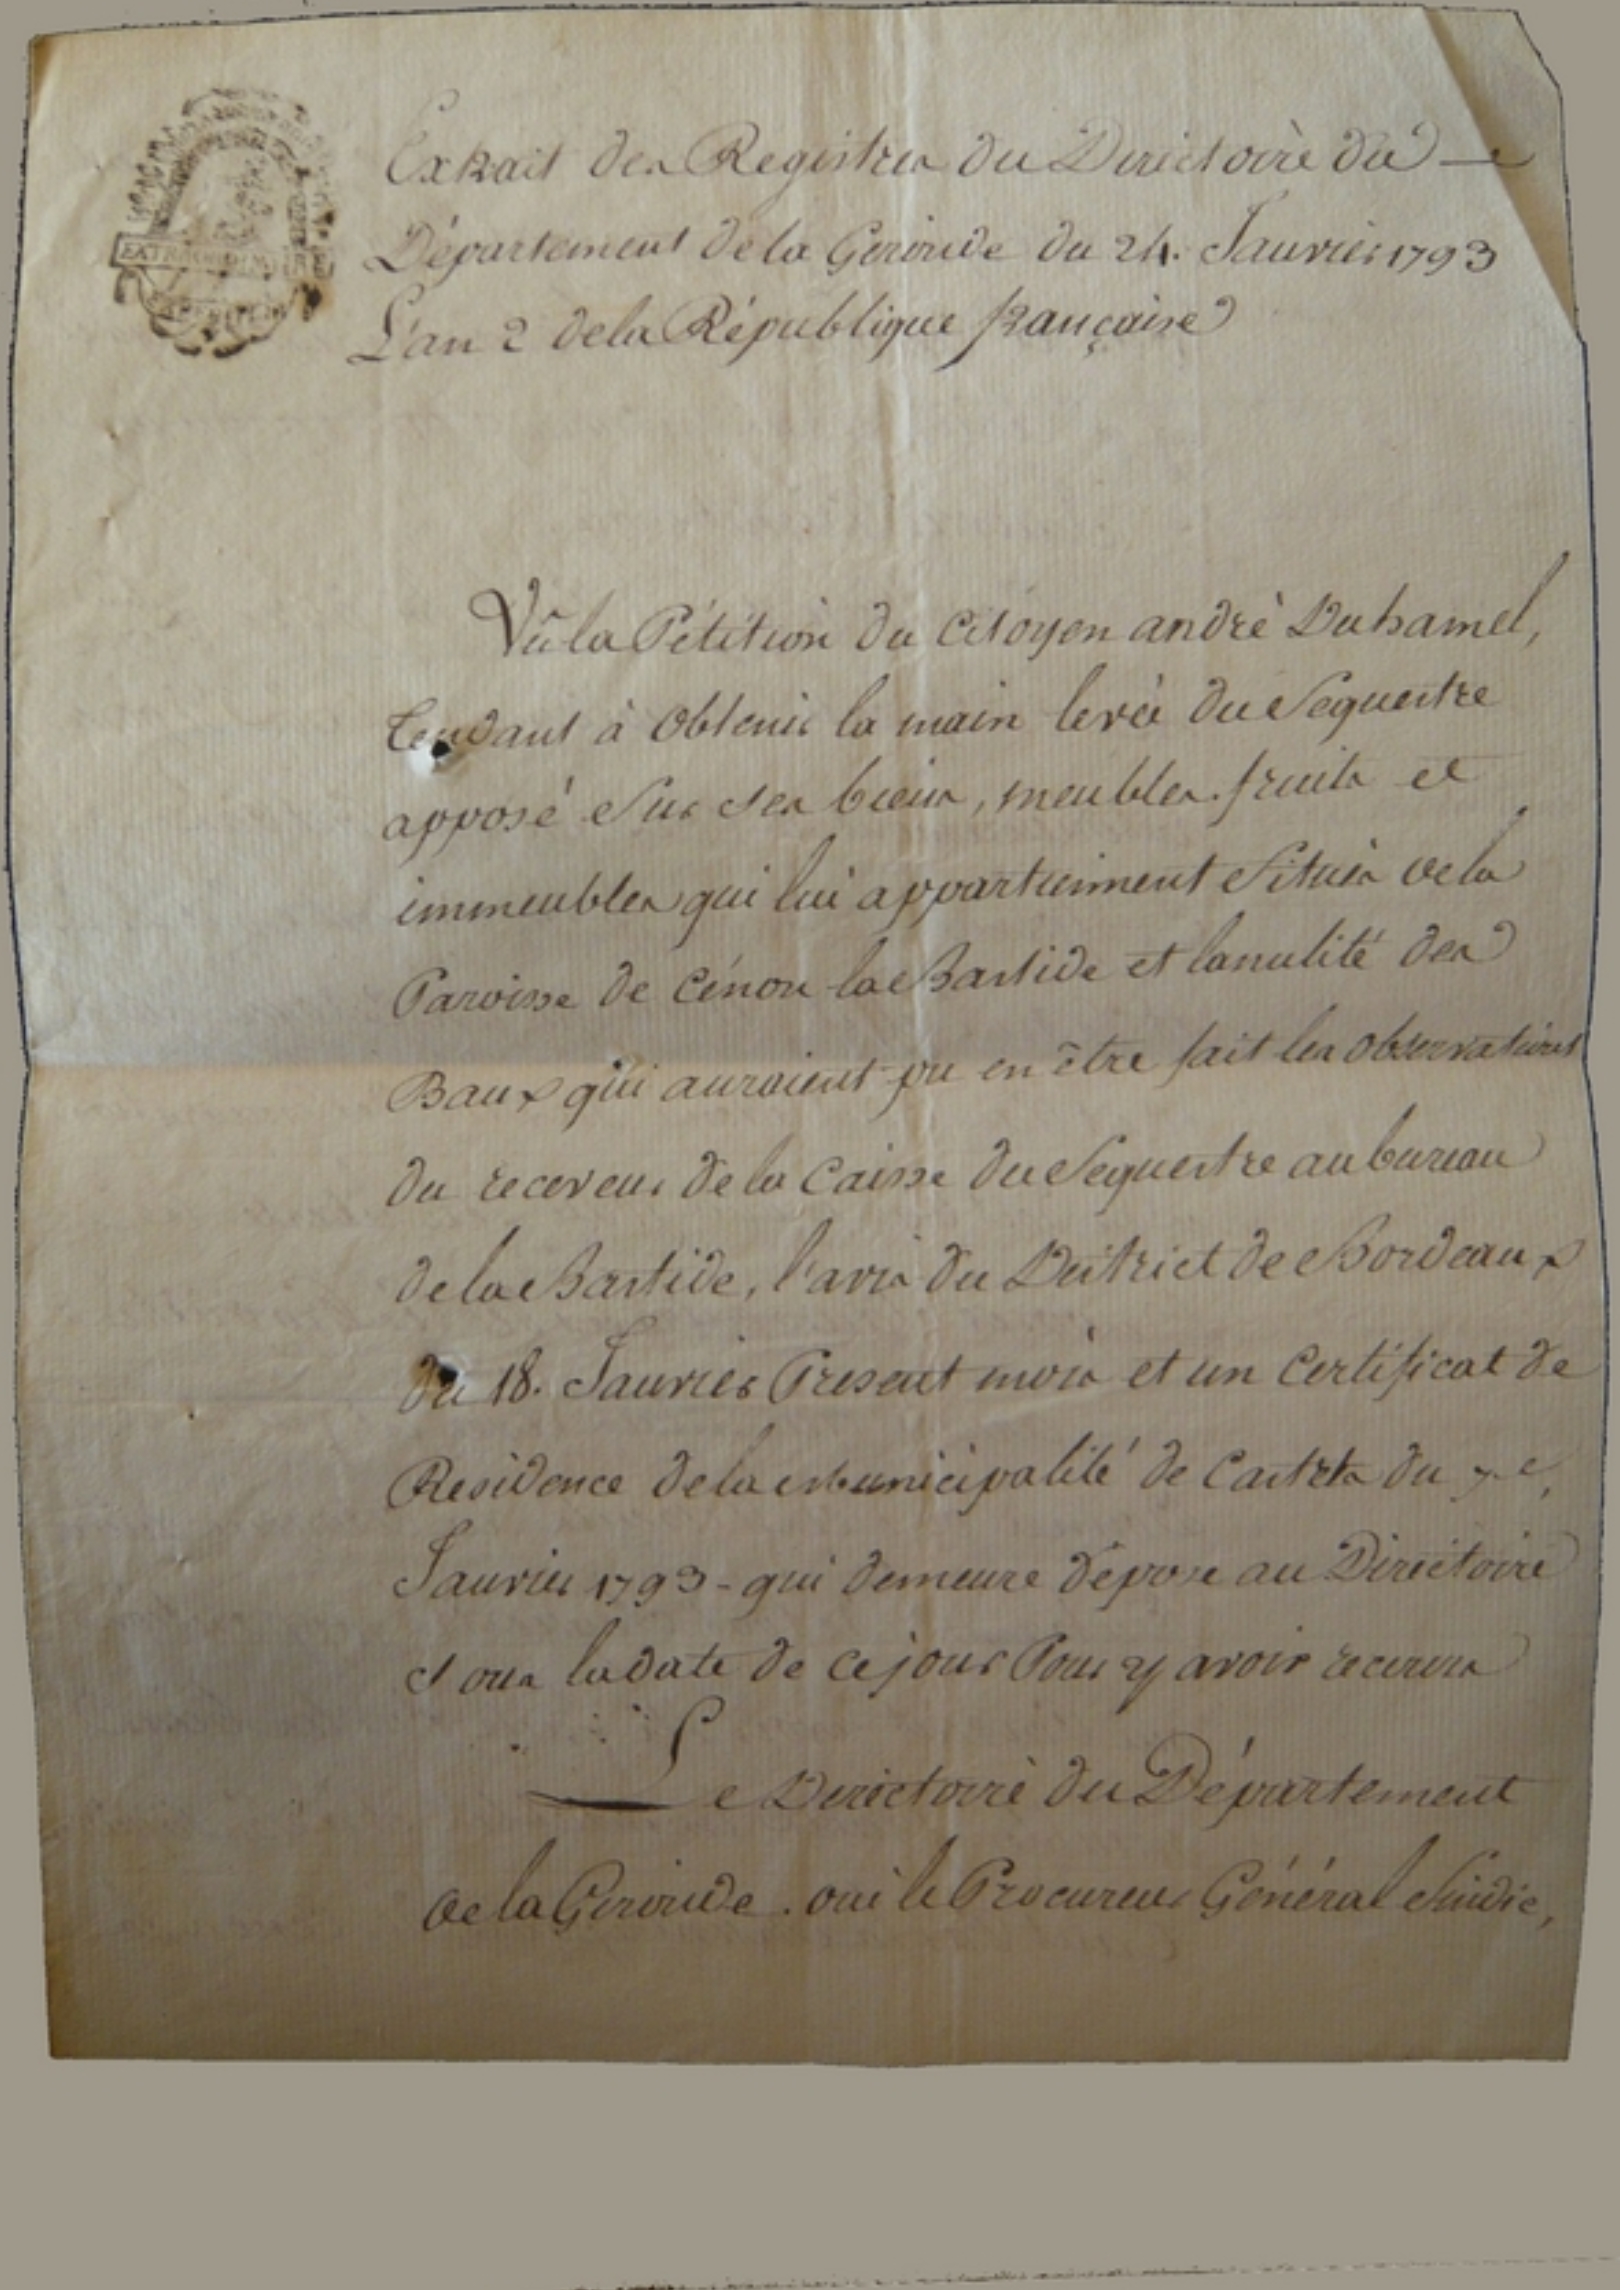 EXTRAORDIN
Extrait des Registres du Directoire du
Département de la Gironde du 24. Janvier 1793
L'an 2 de la République française
Vû la Pétition du Citoyen andré Duhamel,
tendant à obtenir la main levée du Sequestre
apposé Sur Ses biens, meubles. fruits et
immeubles qui lui appartiennent Situés de la
Paroisse de Cénon la Bastide et la nulité des
Baux qui auraient pu en être fait les observations
du receveur de la Caisse du Sequestre au bureau
de la Bastide, l'avis du District de Bordeaux
du 18. Janvier Présent mois et un Certificat de
Residence de la Municipalité de Castets du 7.e,
Janvier 1793 - qui demeure déposé au Directoire
Sous la date de ce jour Pour y avoir recours
Le Directoire du Département
de la Gironde. oui le Procureur Général Sindic,